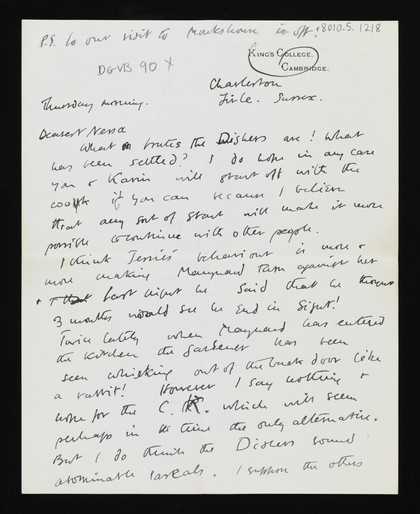 P.S. So our visit to Monkshouse is off!
8010.5.1218
DGVB 90 X
KING'S COLLEGE,
CAMBRIDGE.
Charleston
Firle. Sussex.
Thursday morning.
Dearest Nessa
What brutes the Dishers are! What
has been settled? I do hope in any case
you & Karin will start off with the
cook if you can because I believe
that any sort of start will make it more
possible to continue with other people.
I think Jessie's behaviour is more &
more making Maynard turn against her
& last night he said that he thought
3 months would see the End in Sight!
Twice lately when Maynard has entered
the kitchen the Gardener has been
seen whisking out of the back door like
a rabbit! However I say nothing &
hope for the C. which will seem
perhaps in the time the only alternative.
But I do think the Dishers sound
abominable rascals. I suppose the others